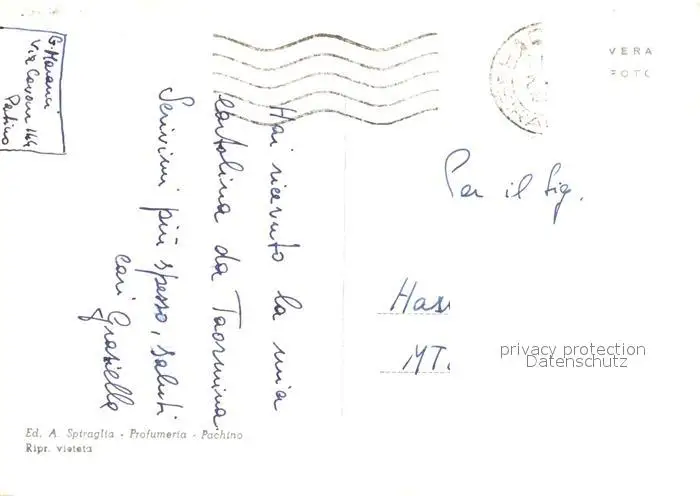 G. Maranci
Via Cavour 144
Pachino
Hai ricevuto la mia
cartolina da Taormina.
Scrivimi più spesso, saluti
cari Graziella
VERA
FOTO
Per il Sig.
Has
MT.
privacy protection
Datenschutz
Ed. A. Spiraglia - Profumeria - Pachino
Ripr. vietata